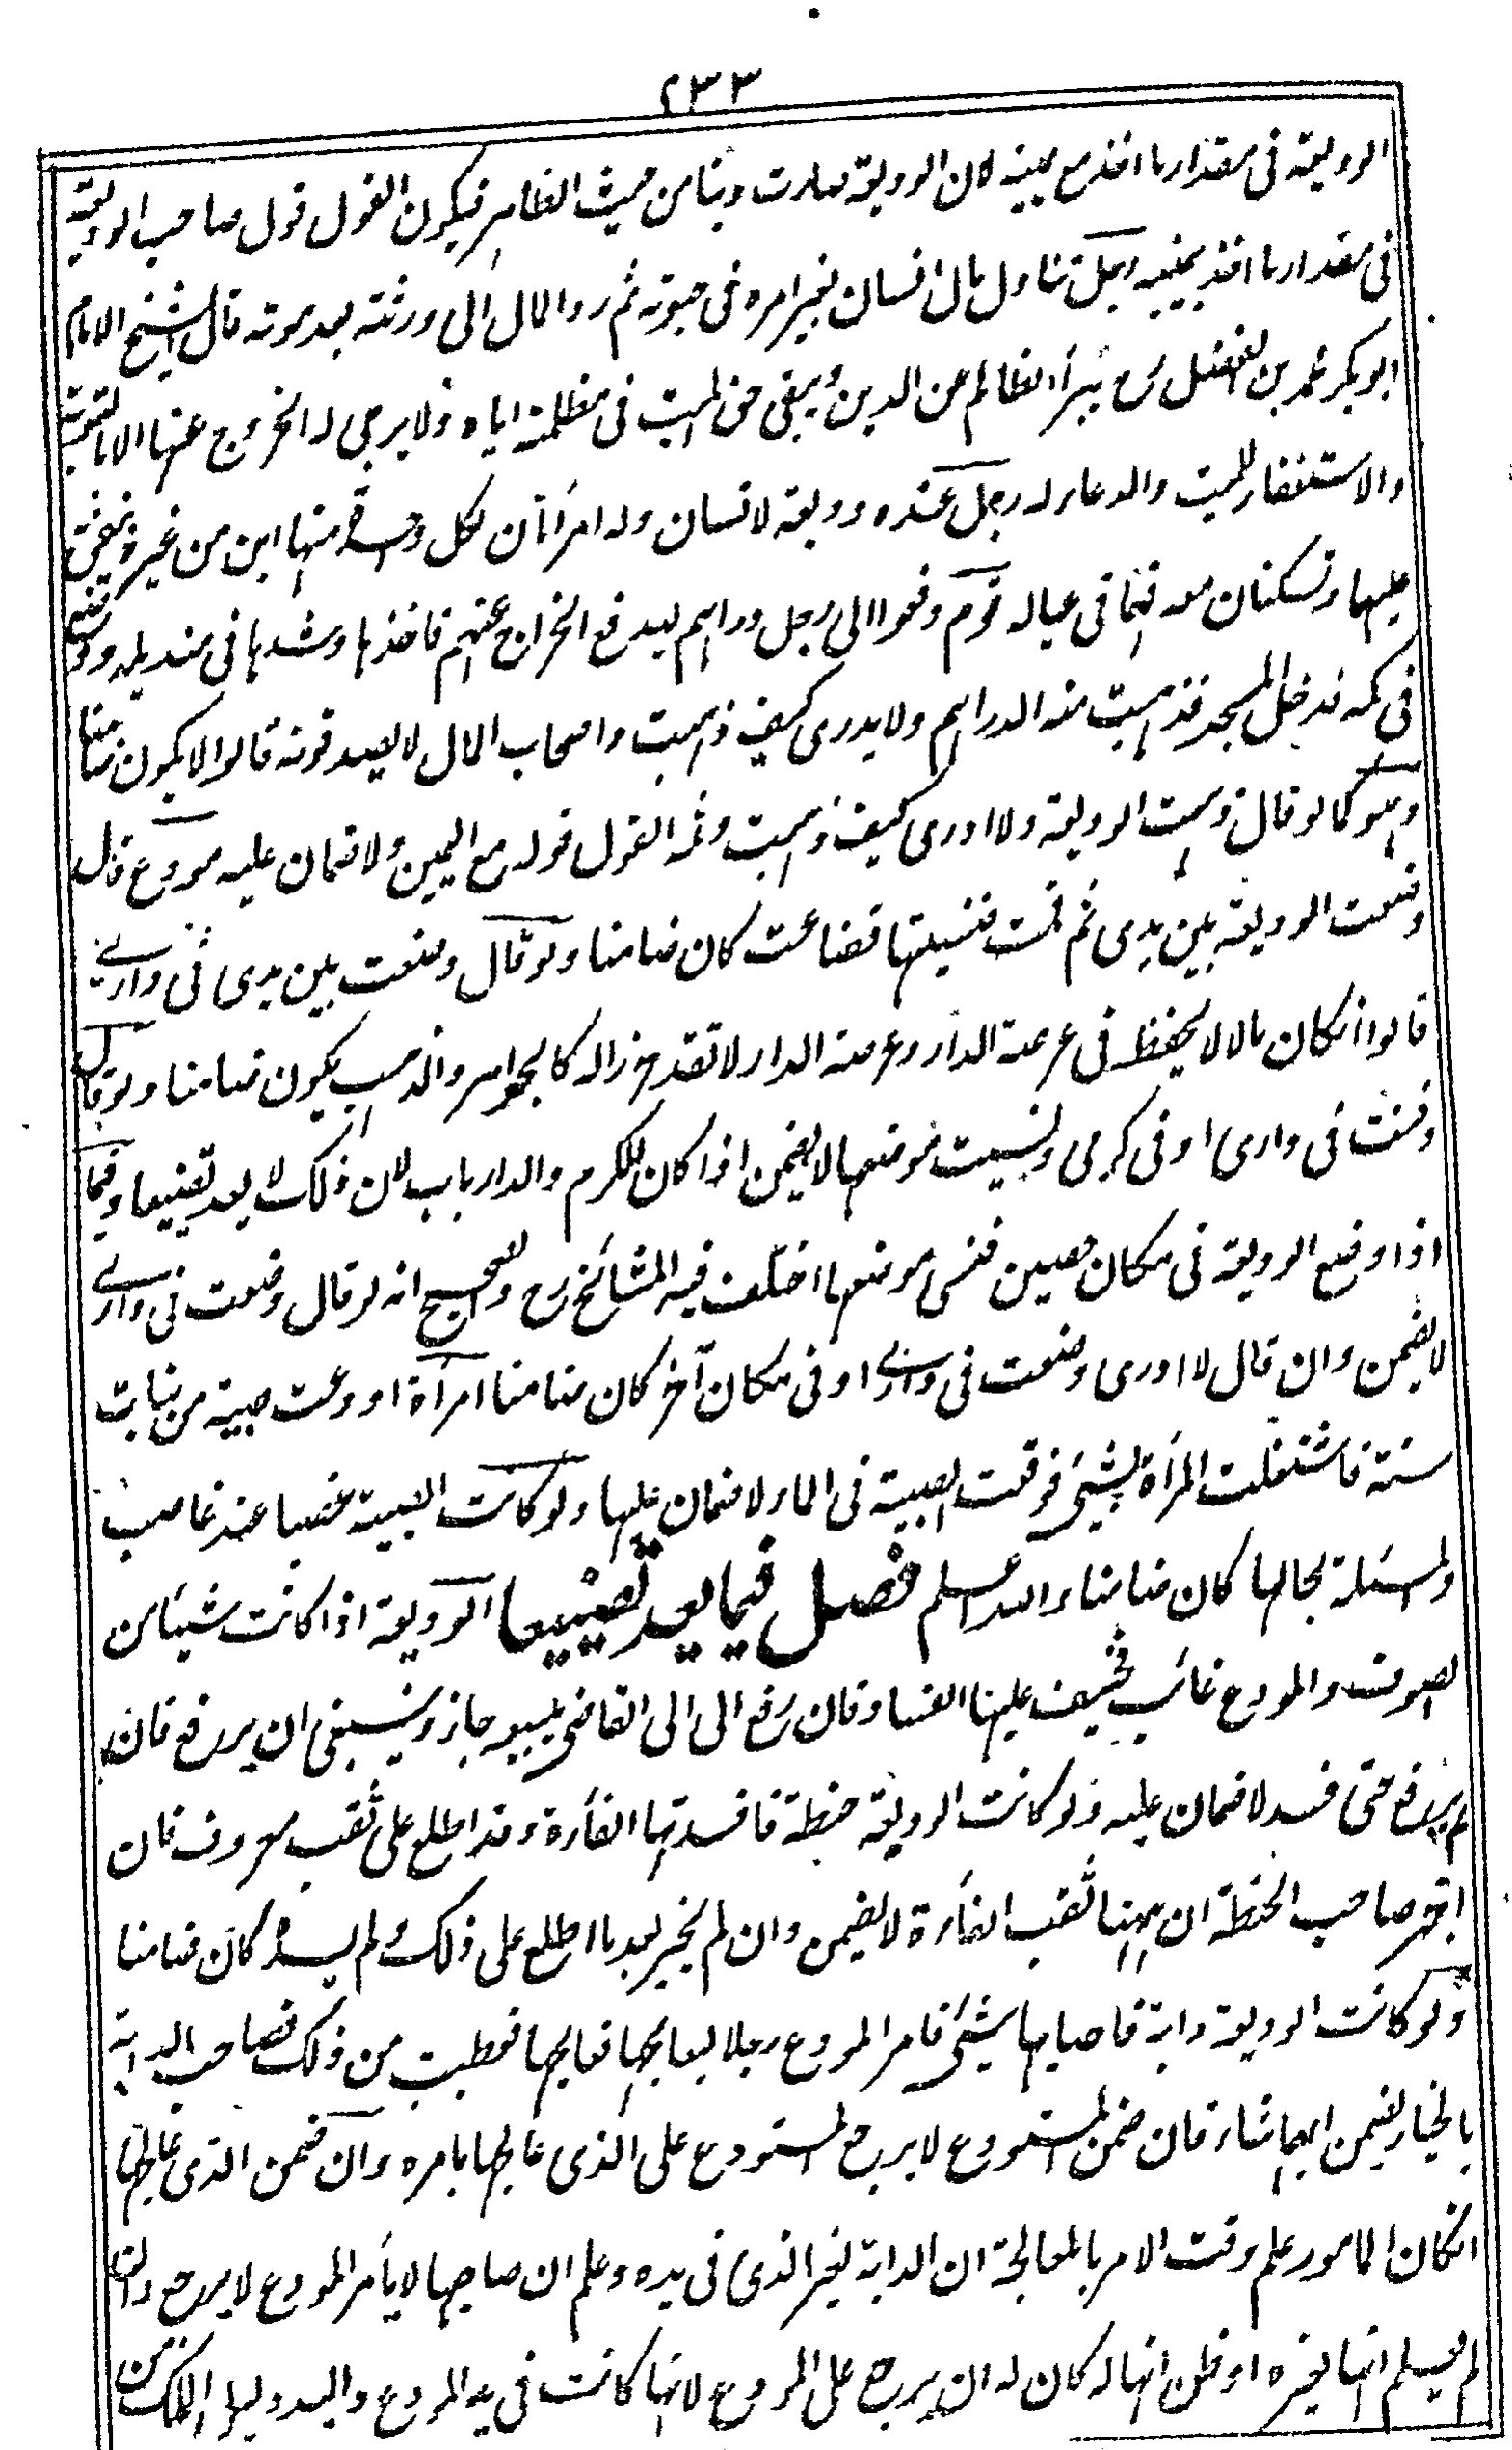 ٢٣٣
الوديعة فى مقدار ما اخذ مع يمينه لان الوديعة صارت دينا من حيث الظاهر فيكون القول قول صاحب الوديعة
فى مقدار ما اخذ بيمينه رجل تناول مال انسان بغير امره فى حيوته ثم رد المال الى ورثته بعد موته قال الشيخ الامام
ابوبكر محمد بن الفضل رح يبرأ الظالم عن الدين ويبقى حق الميت فى مظلمته اياه ولا يرجى له الخروج عنها الا بالتوبة
والاستغفار للميت والدعاء له رجل عنده وديعة لانسان وله امرأتان لكل واحدة منهما ابن من غيره ينفق
عليهما وتسكنان معه فهما فى عياله قوم دفعوا الى رجل دراهم ليدفع الخراج عنهم فاخذها وشدها فى منديله ووضع
فى كمه فدخل المسجد فذهبت منه الدراهم ولا يدرى كيف ذهبت واصحاب المال لا يصدقونه قالوا لا يكون ضامنا
وهو كما لو قال ذهبت الوديعة ولا ادرى كيف ذهبت وثمه القول قوله مع اليمين ولا ضمان عليه مودع قال
وضعت الوديعة بين يدى ثم قمت فنسيتها فضاعت كان ضامنا ولو قال وضعت بين يدى فى دارى
قالوا انكان مالا لا يحفظ فى عرصة الدار وعرصة الدار لا تعد حرزا له كالجواهر والذهب يكون ضامنا ولو قال
دفنت فى دارى او فى كرمى ونسيت موضعها لا يضمن اذا كان للكرم والدار باب لان ذلك لا يعد تضييعا وفيما
اذا وضع الوديعة فى مكان حصين فنسى موضعها اختلف فيه المشائخ رح والصحيح انه لو قال وضعت فى دارى
لا يضمن وان قال لا ادرى وضعت فى دارى او فى مكان آخر كان ضامنا امرأة اودعت صبية من بنات
سنة فاشتغلت المرأة بشئ فوقعت الصبية فى الماء لا ضمان عليها ولو كانت الصبية غصبا عند غاصب
والمسئلة بحالها كان ضامنا والله اعلم فصل فيما يعد تضييعا الوديعة اذا كانت شيئا من
الصوف والمودع غائب فخيف عليها الفساد فان رفع الى القاضى ليبيعه جاز وينبغى ان يرفع فان
لم يرفع حتى فسد لا ضمان عليه ولو كانت الوديعة حنطة فافسدتها الفأرة وقد اطلع على ثقب معروف فان
اخبر صاحب الحنطة ان ههنا ثقب الفأرة لا يضمن وان لم يخبر بعد ما اطلع على ذلك ولم يسده كان ضامنا
ولو كانت الوديعة دابة فاصابها شئ فامر المودع رجلا ليعالجها فعالجها فعطبت من ذلك فصاحب الدابة
بالخيار يضمن ايهما شاء فان ضمن المستودع لا يرجع المستودع على الذى عالجها بامره وان ضمن الذى عالجها
انكان المامور علم وقت الامر بالمعالجة ان الدابة لغير الذى فى يده وعلم ان صاحبها لا يأمر المودع لا يرجع وان
لم يعلم انها لغيره او ظن انها له كان له ان يرجع على المودع لانها كانت فى يد المودع واليد دليل الملك من